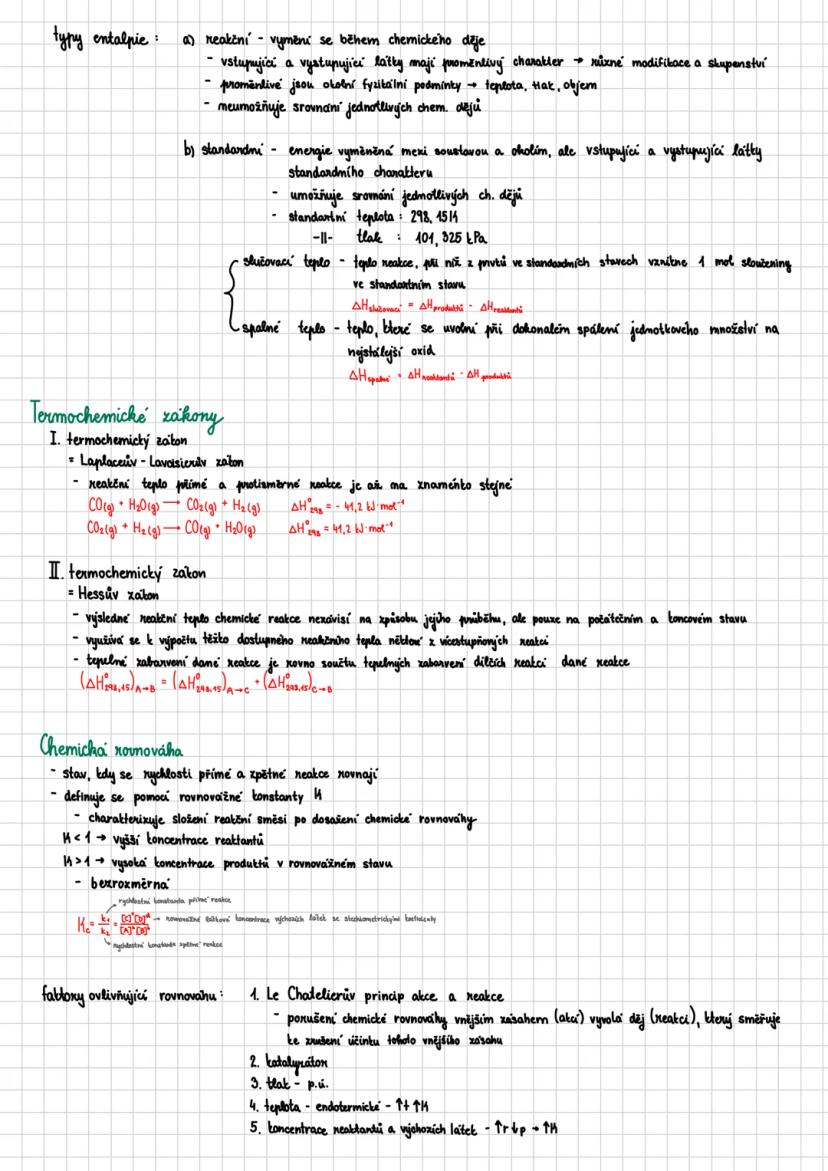 typy entalpie : a) reakční - vymění se během chemického děje
- vstupující a vystupující látky mají proměnlivý charakter → různé modifikace a skupenství
- proměnlivé jsou okolní fyzikální podmínky → teplota, tlak, objem
- neumožňuje srovnání jednotlivých chem. dějů
b) standardní - energie vyměněná mezi soustavou a okolím, ale vstupující a vystupující látky
standardního charakteru
- umožňuje srovnání jednotlivých ch. dějů
- standartní teplota : 298,15K
-||- tlak : 101,325 kPa
slučovací teplo - teplo reakce, při níž z prvků ve standardních stavech vznikne 1 mol sloučeniny
ve standartním stavu
ΔH slučovací = ΔH produktů - ΔH reaktantů
spalné teplo - teplo, které se uvolní při dokonalém spálení jednotkového množství na
nejstálejší oxid
ΔH spalné = ΔH reaktantů - ΔH produktů
Termochemické zákony
I. termochemický zákon
= Laplaceův - Lavoisierův zákon
- reakční teplo přímé a protisměrné reakce je až na znaménko stejné
CO(g) + H₂O(g) → CO₂(g) + H₂(g) ΔH°₂₉₈ = - 41,2 kJ·mol⁻¹
CO₂(g) + H₂(g) → CO(g) + H₂O(g) ΔH°₂₉₈ = 41,2 kJ·mol⁻¹
II. termochemický zákon
= Hessův zákon
- výsledné reakční teplo chemické reakce nezávisí na způsobu jejího průběhu, ale pouze na počátečním a koncovém stavu
- využívá se k výpočtu těžko dostupného reakčního tepla některé z vícestupňových reakcí
- tepelné zabarvení dané reakce je rovno součtu tepelných zabarvení dílčích reakcí dané reakce
(ΔH°₂₉₈,₁₅)A→B = (ΔH°₂₉₈,₁₅)A→C + (ΔH°₂₉₈,₁₅)C→B
Chemická rovnováha
- stav, kdy se rychlosti přímé a zpětné reakce rovnají
- definuje se pomocí rovnovážné konstanty K
- charakterizuje složení reakční směsi po dosažení chemické rovnováhy
K < 1 → vyšší koncentrace reaktantů
K > 1 → vysoká koncentrace produktů v rovnovážném stavu
- bezrozměrná
rychlostní konstanta přímé reakce
Kc = k₁/k₂ = [C]ᶜ[D]ᵈ/[A]ᵃ[B]ᵇ → rovnovážné látkové koncentrace výchozích látek se stechiometrickými koeficienty
rychlostní konstanta zpětné reakce
faktory ovlivňující rovnováhu : 1. Le Chatelierův princip akce a reakce
- porušení chemické rovnováhy vnějším zásahem (akcí) vyvolá děj (reakci), který směřuje
ke zrušení účinku tohoto vnějšího zásahu
2. katalyzátor
3. tlak - p.ú.
4. teplota - endotermické - ↑t ↑K
5. koncentrace reaktantů a výchozích látek - ↑r ↓p → ↑K